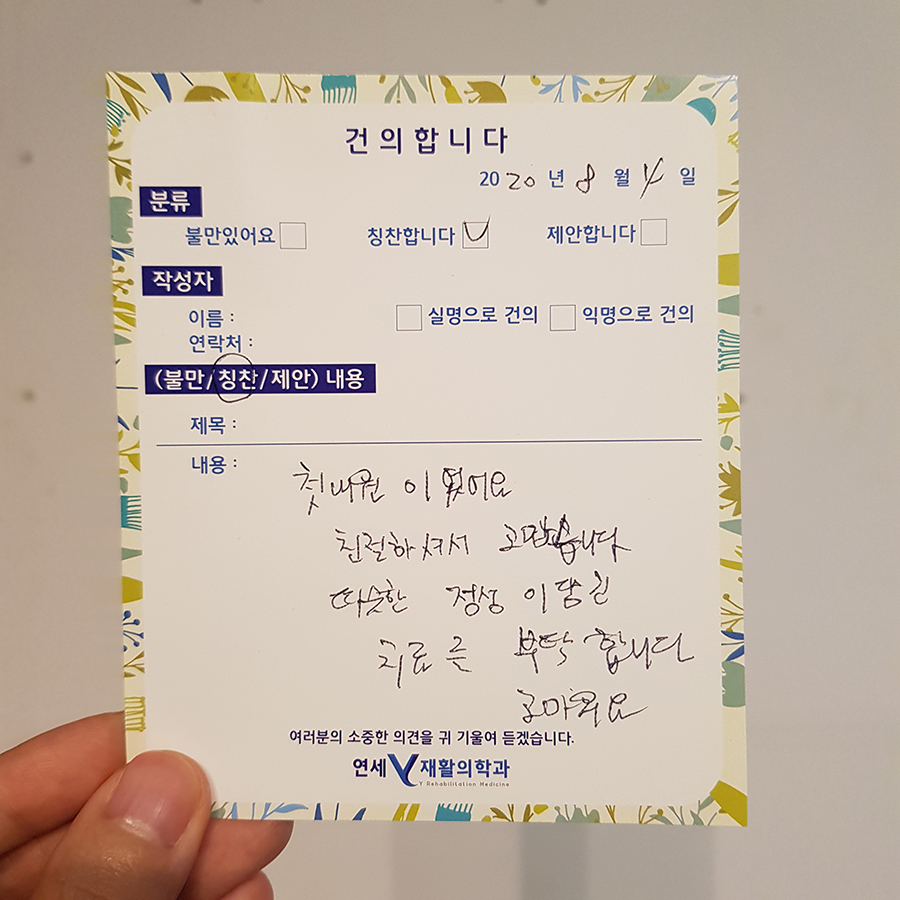 건의합니다
2020년 8월 4일
분류
불만있어요 칭찬합니다 제안합니다
작성자
이름 : 실명으로 건의 익명으로 건의
연락처 :
(불만/칭찬/제안) 내용
제목 :
내용 :
첫내원 이었어요
친절하셔서 고맙습니다
따슷한 정성이담긴
치료를 부탁합니다
고마워요
여러분의 소중한 의견을 귀 기울여 듣겠습니다.
연세 Y 재활의학과
Y Rehabilitation Medicine